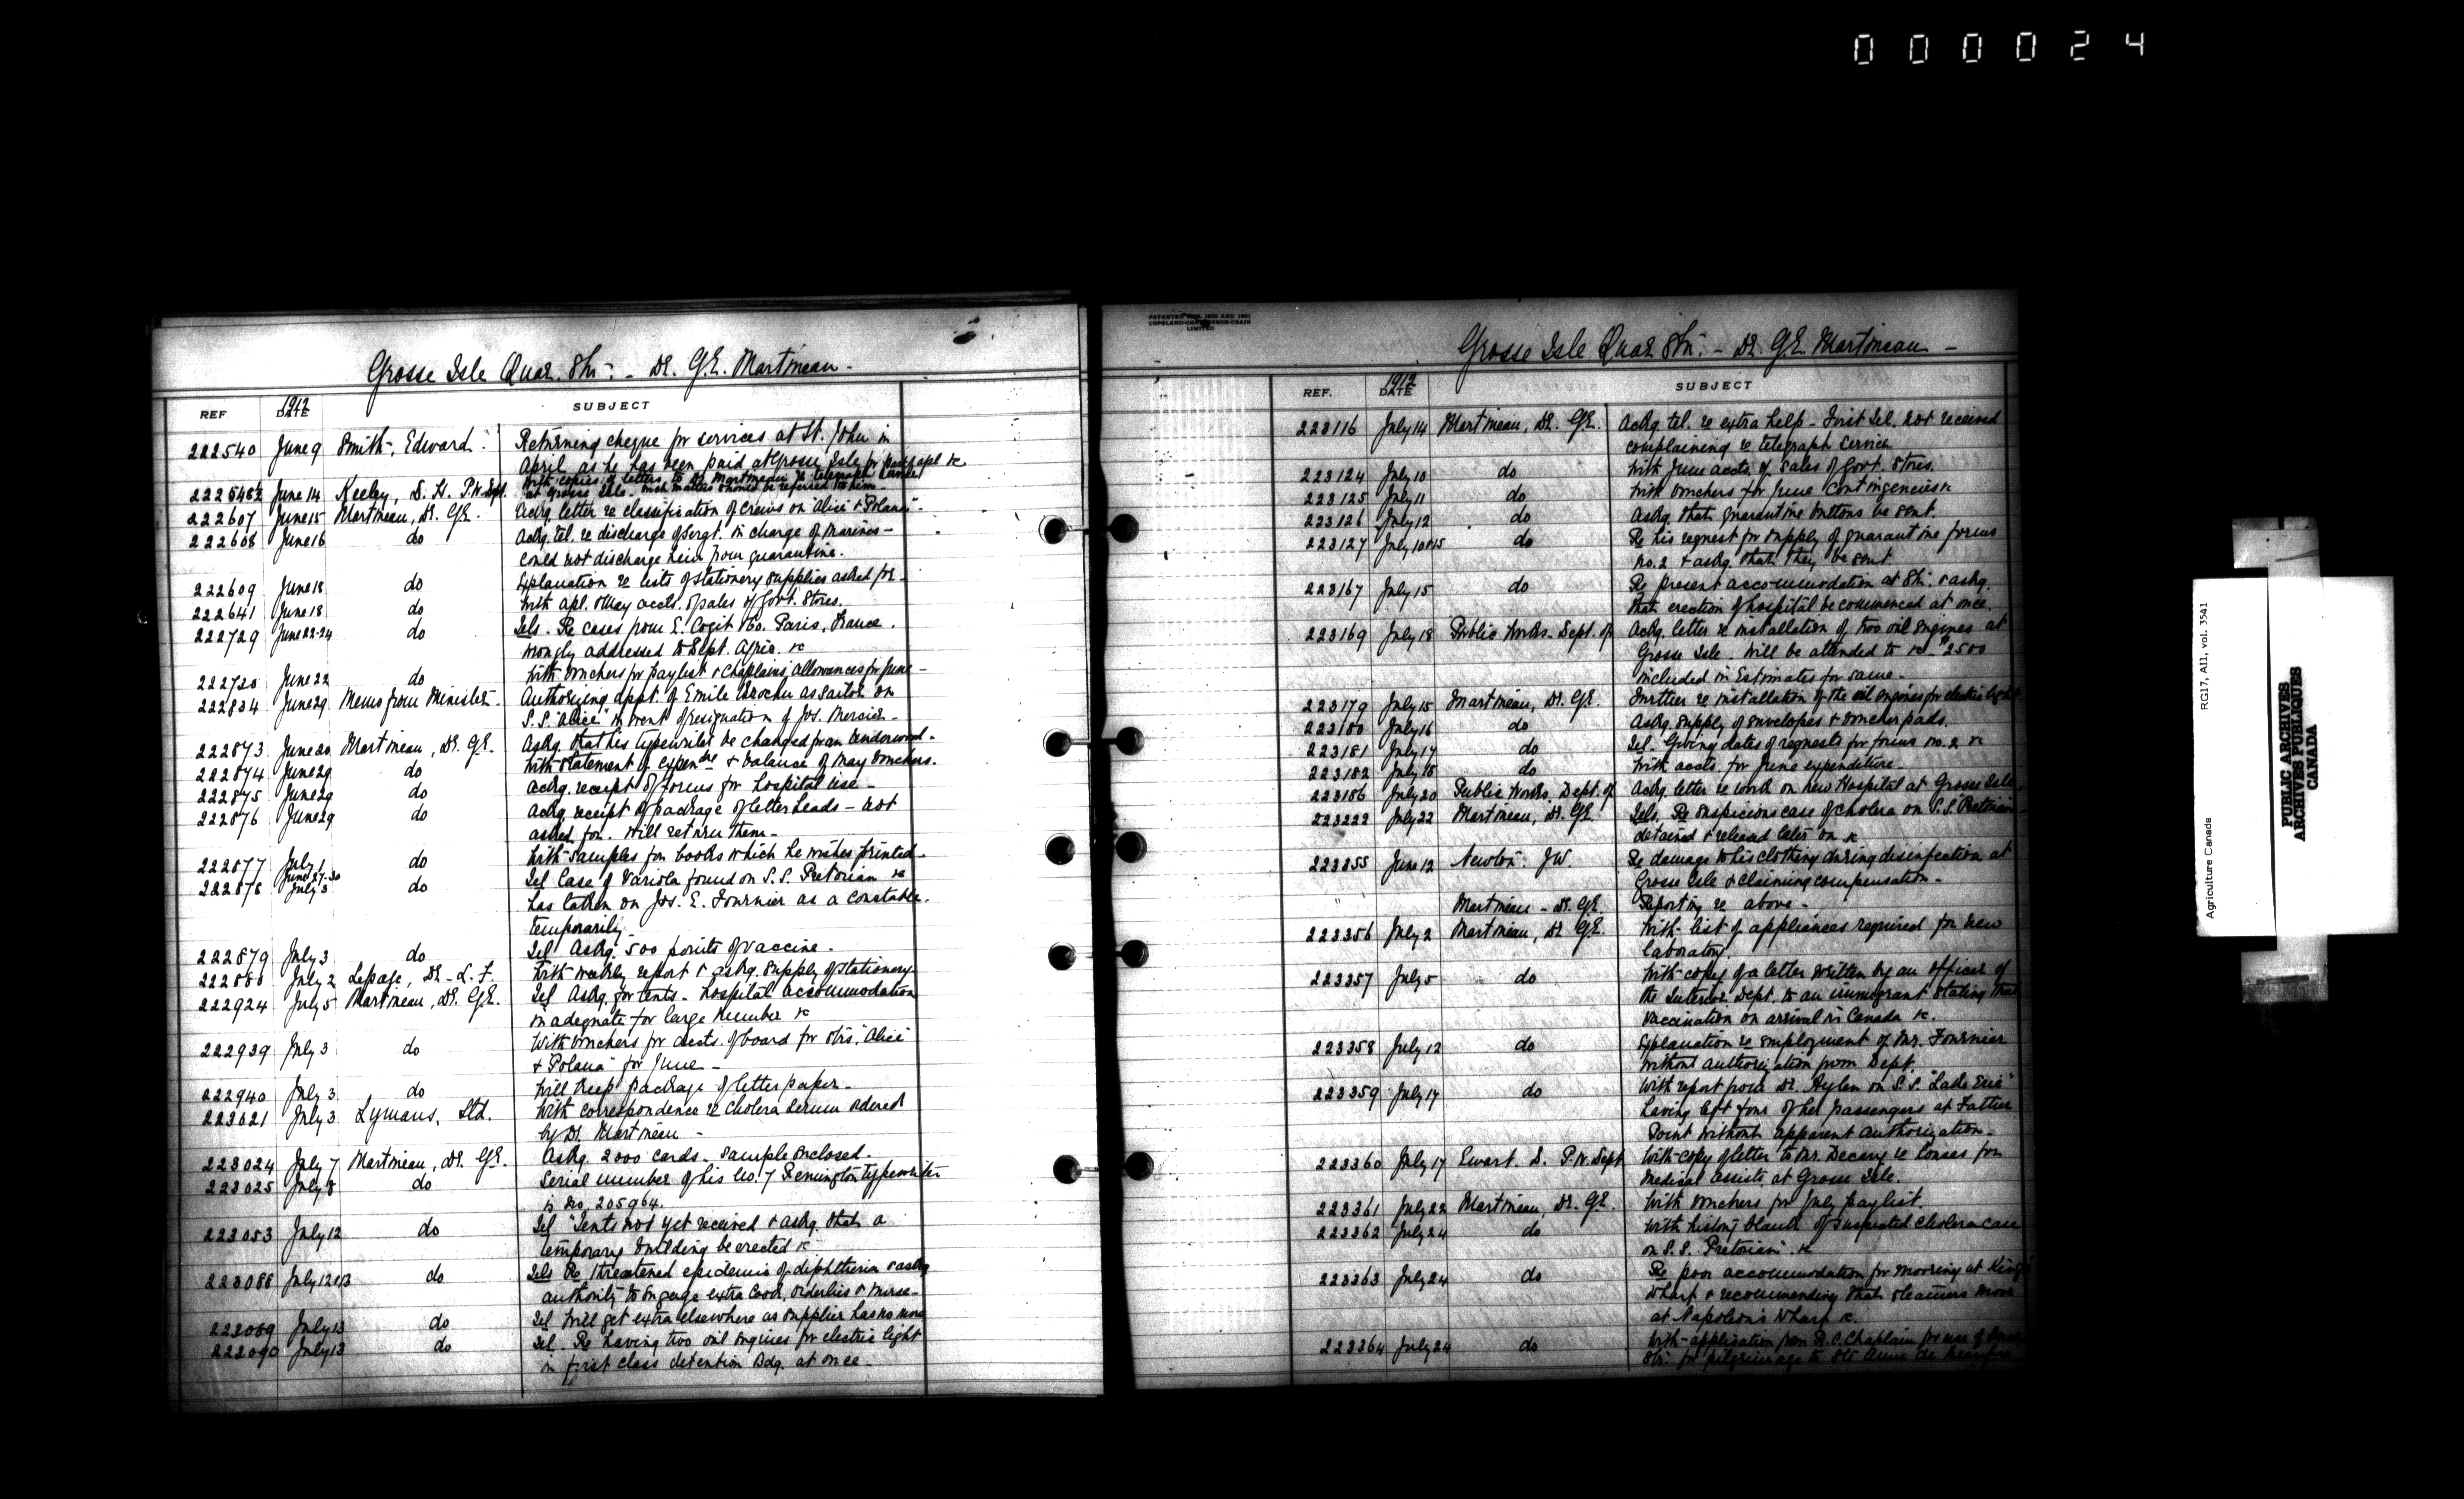 000024
Grosse Isle Quar. Stn. - Dr. G.E. Martineau -
REF. 1912 DATE SUBJECT
222540 June 9 Smith, Edward. Returning cheque for services at St. John in
April as he has been paid at Grosse Isle for part of apl &c
222548½ June 14 Keeley, D. H. P.W. Dept. With copies of letters to Dr. Martineau re telegraph
at Grosse Isle. Such matters should be referred to him.
222607 June 15 Martineau, Dr. G.E. Ackg. letter re classification of crews on "Alice & Polana".
222608 June 16 do Ackg. tel. re discharge of Sergt. in charge of Marines -
could not discharge him from quarantine.
222609 June 18 do Explanation re lists of stationery supplies asked for.
222641 June 18 do With apl. & May accts. of sales of Govt. Stores.
222729 June 22-24 do Tels. Re cases from E. Cogit & Co. Paris, France.
wrongly addressed to Dept. Agric. &c
222730 June 22 do With vouchers for paylist & Chaplains allowances for June -
222834 June 29 Memo from Minister. Authorizing appt. of Emile Brochu as sailor on
S.S. "Alice" in event of resignation of Jos. Mercier -
222873 June 20 Martineau, Dr. G.E. Askg. that his typewriter be changed for an Underwood.
222874 June 29 do With statement of expendre & balance of May vouchers.
222875 June 29 do Ackg. receipt of forms for hospital use -
222876 June 29 do Ackg. receipt of package of letter heads - not
asked for. Will return them -
222877 July 1 do With samples for books which he wishes printed.
222878 June 27-30 July 3 do Tel Case of Variola found on S.S. Pretorian &c
has taken on Jos. E. Fournier as a constable.
temporarily.
222879 July 3 do Tel Askg. 500 points of vaccine.
222880 July 2 Lepage, Dr. L. F. With weekly report & askg. supply of stationery
222924 July 5 Martineau, Dr. G.E. Tel Askg. for tents - hospital accommodation
inadequate for large number &c
222939 July 3 do With vouchers for accts. of board for Strs. "Alice
& Polana" for June -
222940 July 3 do Will keep package of letter paper -
223021 July 3 Lymans, Ltd. With correspondence re cholera serum ordered
by Dr. Martineau -
223024 July 7 Martineau, Dr. G.E. Askg. 2000 cards. sample enclosed.
223025 July 8 do Serial number of his No. 7 Remington typewriter
is No. 205964.
223053 July 12 do Tel Tents not yet received & askg. that a
temporary building be erected &c
223088 July 12 & 13 do Tels Re threatened epidemic of diphtheria & askg
authority to engage extra cook, orderlies & nurse -
223089 July 13 do Tel Will get extra elsewhere as supplier has no more
223090 July 13 do Tel. Re having two oil engines for electric light
in first class detention Bdg. at once -
PATENTED 1900 AND 1901
COPELAND-CHATTERSON-CRAIN
LIMITED
Grosse Isle Quar Stn. - Dr. G.E. Martineau -
REF. 1912 DATE SUBJECT
223116 July 14 Martineau, Dr. G.E. Ackg tel. re extra help - First Tel. not received
complaining re telegraph service
223124 July 10 do With June accts. of sales of Govt. Stores.
223125 July 11 do With vouchers for June contingencies &c
223126 July 12 do Askg. that quarantine buttons be sent.
223127 July 10 & 15 do Re his request for supply of quarantine forms
no. 2 & askg. that they be sent
223167 July 15 do Re present accommodation at Stn. & askg.
that erection of hospital be commenced at once.
223169 July 18 Public Works - Dept. of Ackg. letter re installation of two oil engines at
Grosse Isle. Will be attended to &c $2500
included in Estimates for same -
223179 July 15 Martineau, Dr. G.E. Further re installation of the oil engines for electric light
223180 July 16 do Askg. supply of envelopes & voucher pads.
223181 July 17 do Tel. Giving dates of requests for forms no. 2 &c
223182 July 18 do With accts. for June expenditure
223186 July 20 Public Works, Dept. of Ackg. letter re work on new Hospital at Grosse Isle.
223222 July 22 Martineau, Dr. G.E. Tels. Re suspicious case of cholera on S.S. "Pretorian
detained & released later on &c
223355 June 12 Newton, J.W. Re damage to his clothing during disinfection at
Grosse Isle & claiming compensation -
Martineau - Dr. G.E. Reporting re above -
223356 July 2 Martineau, Dr G.E. With list of appliances required for new
laboratory.
223357 July 5 do With copy of a letter written by an Officer of
the Interior Dept. to an immigrant stating that
vaccination on arrival in Canada &c.
223358 July 12 do Explanation re employment of Mr. Fournier
without authorization from Dept.
223359 July 17 do With report from Dr. Aylen on S.S. "Lake Erie"
having left four of her passengers at Father
Point without apparent authorization -
223360 July 17 Ewart. D. P.W. Dept With copy of letter to Mr. Decary re houses for
medical assists. at Grosse Isle.
223361 July 22 Martineau, Dr. G.E. With vouchers for July paylist.
223362 July 24 do With history blank of suspected cholera case
on S.S. Pretorian" &c
223363 July 24 do Re poor accommodation for mooring at King's
Wharf & recommending that steamers moor
at Napoleon's Wharf &c.
223364 July 24 do With application from R.C. Chaplain for use of
Str. for pilgrimage to Ste Anne de Beaupre
RG17, AII, vol. 3541
Agriculture Canada
PUBLIC ARCHIVES
ARCHIVES PUBLIQUES
CANADA